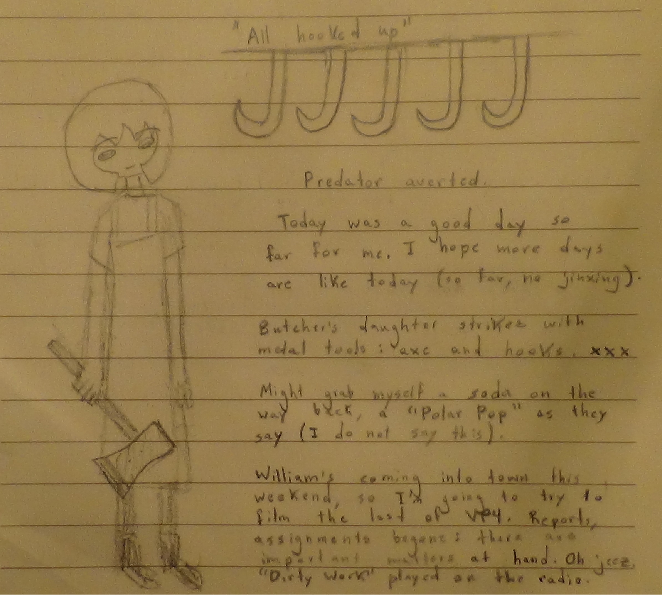 "All hooked up"
Predator averted.
Today was a good day so
far for me. I hope more days
are like today (so far, no jinxing).
Butcher's daughter strikes with
metal tools: axe and hooks. xxx
Might grab myself a soda on the
way back, a "Polar Pop" as they
say (I do not say this).
William's coming into town this
weekend, so I'm going to try to
film the last of VP4. Reports,
assignments begone: there are
important matters at hand. Oh jeez,
"Dirty Work" played on the radio.